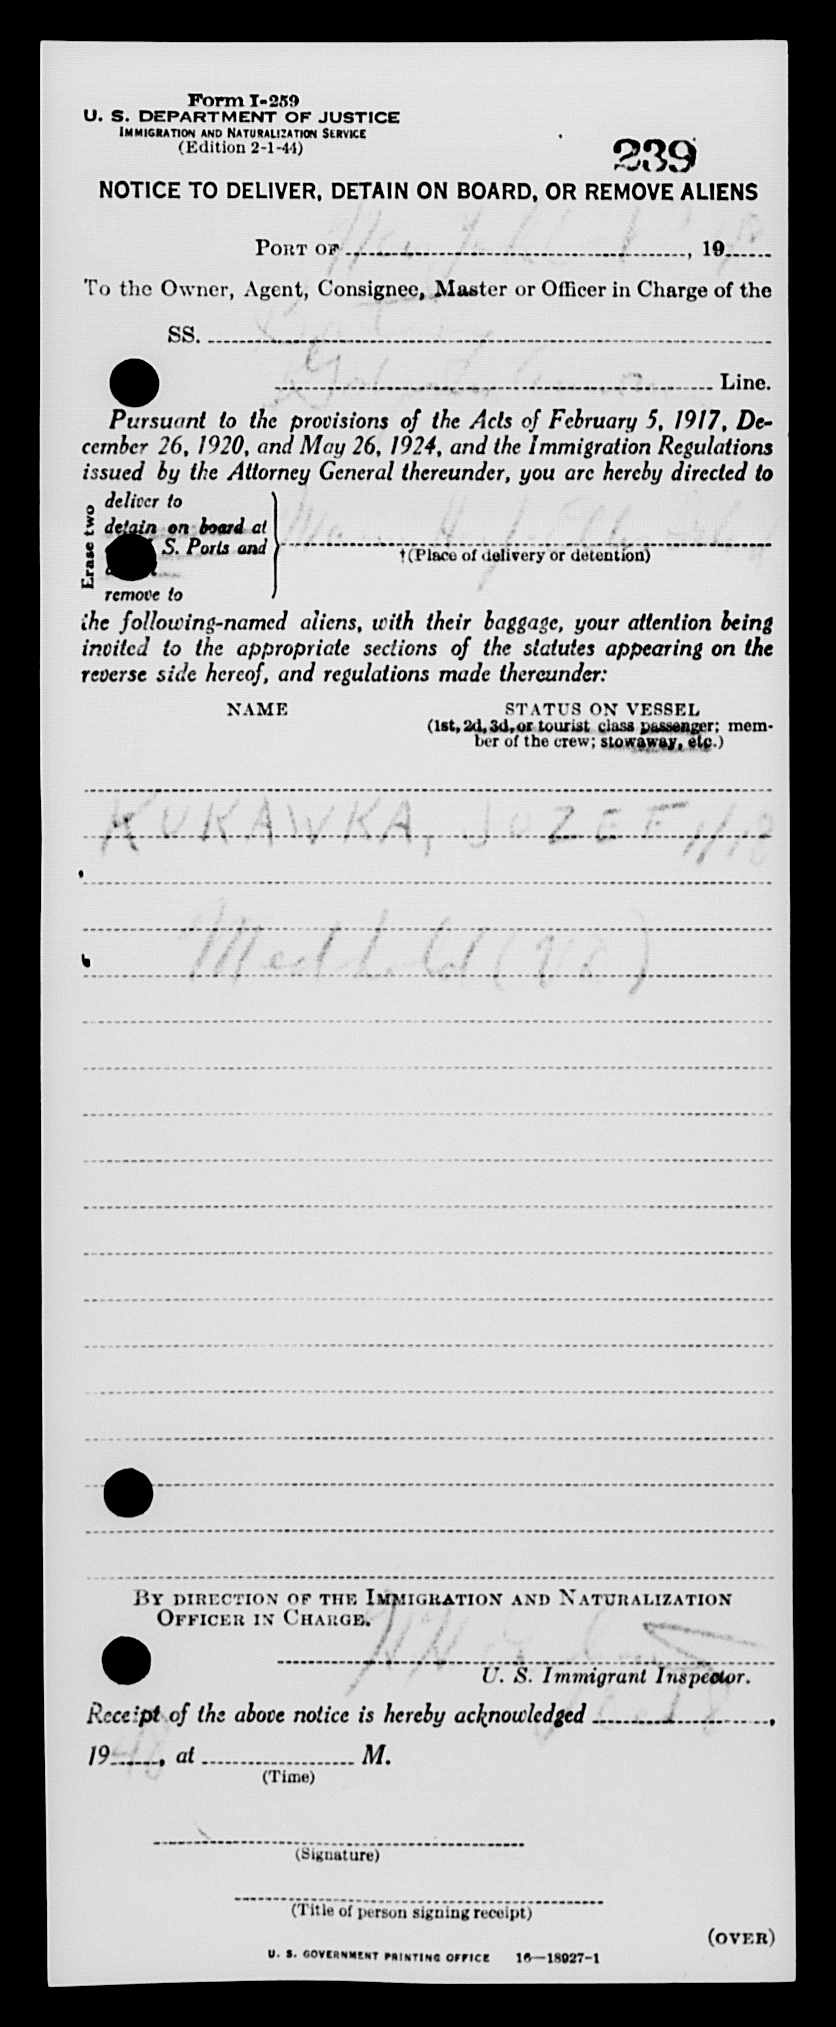 Form I-259
U. S. DEPARTMENT OF JUSTICE
IMMIGRATION AND NATURALIZATION SERVICE
(Edition 2-1-44)
239
NOTICE TO DELIVER, DETAIN ON BOARD, OR REMOVE ALIENS
PORT OF , 19
To the Owner, Agent, Consignee, Master or Officer in Charge of the
SS.
Line.
Pursuant to the provisions of the Acts of February 5, 1917, De-
cember 26, 1920, and May 26, 1924, and the Immigration Regulations
issued by the Attorney General thereunder, you are hereby directed to
Erase two
deliver to
detain on board at
S. Ports and
remove to
†(Place of delivery or detention)
the following-named aliens, with their baggage, your attention being
invited to the appropriate sections of the statutes appearing on the
reverse side hereof, and regulations made thereunder:
NAME STATUS ON VESSEL
(1st, 2d, 3d, or tourist class passenger; mem-
ber of the crew; stowaway, etc.)
KUKAWKA, JOZEF 1/18
Med hold
BY DIRECTION OF THE IMMIGRATION AND NATURALIZATION
OFFICER IN CHARGE.
U. S. Immigrant Inspector.
Receipt of the above notice is hereby acknowledged ,
1948, at M.
(Time)
(Signature)
(Title of person signing receipt)
(OVER)
U. S. GOVERNMENT PRINTING OFFICE 16—18027-1